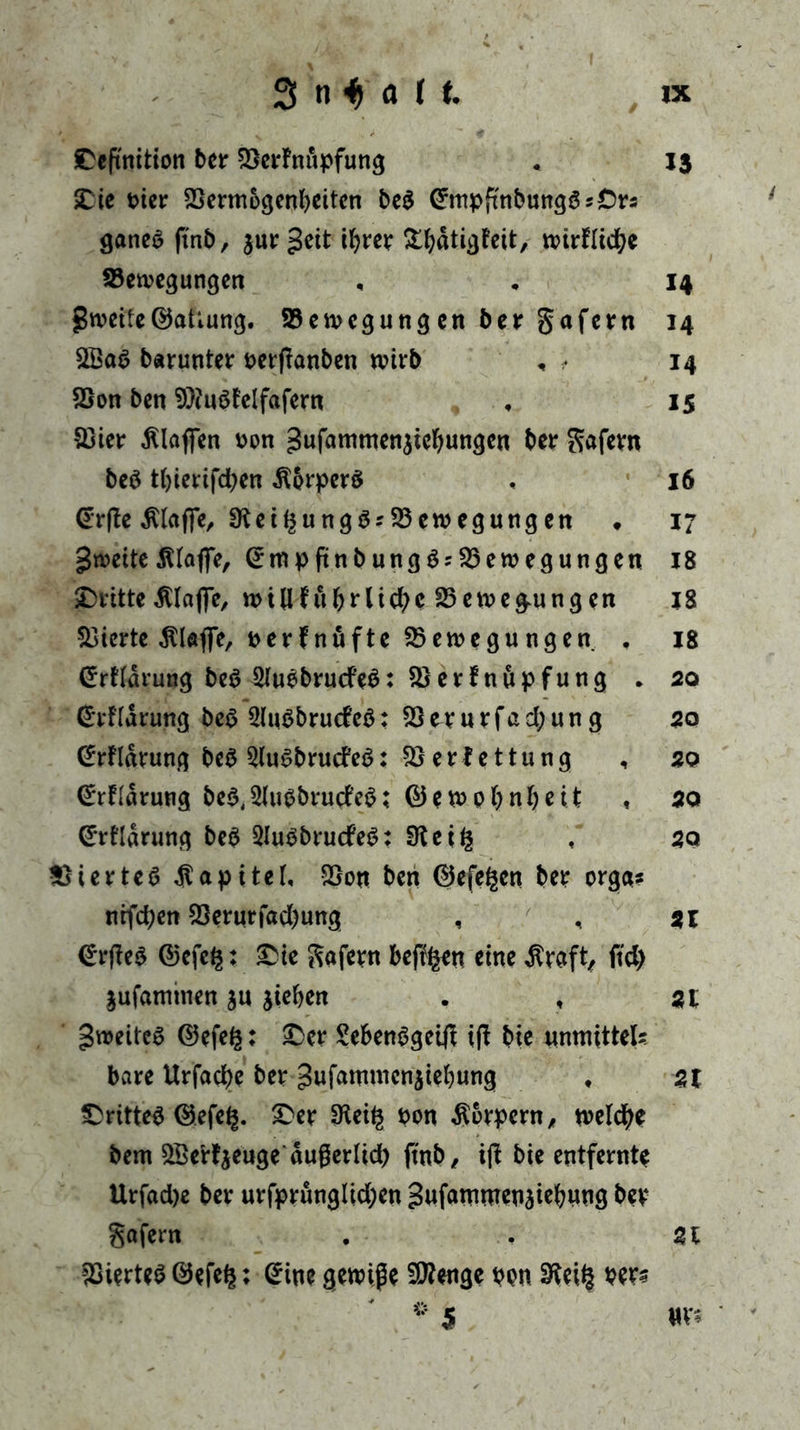 Inhalt. IX
Definition der Verknüpfung . 13
Die vier Vermögenheiten des Empfindungs-Or-
ganes sind, zur Zeit ihrer Thätigkeit, wirkliche
Bewegungen . . 14
Zweite Gattung. Bewegungen der Fasern 14
Was darunter verstanden wird . . 14
Von den Muskelfasern . . 15
Vier Klassen von Zusammenziehungen der Fasern
des thierischen Körpers . 16
Erste Klasse, Reitzungs-Bewegungen . 17
Zweite Klasse, Empfindungs-Bewegungen 18
Dritte Klasse, willkührliche Bewegungen 18
Vierte Klasse, verknüfte Bewegungen . 18
Erklärung des Ausdruckes: Verknüpfung . 20
Erklärung des Ausdruckes: Verursachung 20
Erklärung des Ausdruckes: Verkettung . 20
Erklärung des Ausdruckes: Gewohnheit . 20
Erklärung des Ausdruckes: Reitz . 20
Viertes Kapitel. Von den Gesetzen der orga-
nischen Verursachung . . 21
Erstes Gesetz: Die Fasern besitzen eine Kraft, sich
zusammen zu ziehen . . 21
Zweites Gesetz: Der Lebensgeist ist die unmittel-
bare Ursache der Zusammenziehung . 21
Drittes Gesetz. Der Reitz von Körpern, welche
dem Werkzeuge äußerlich sind, ist die entfernte
Ursache der ursprünglichen Zusammenziehung der
Fasern . . 21
Viertes Gesetz: Eine gewiße Menge von Reitz ver-
* 5 ur-